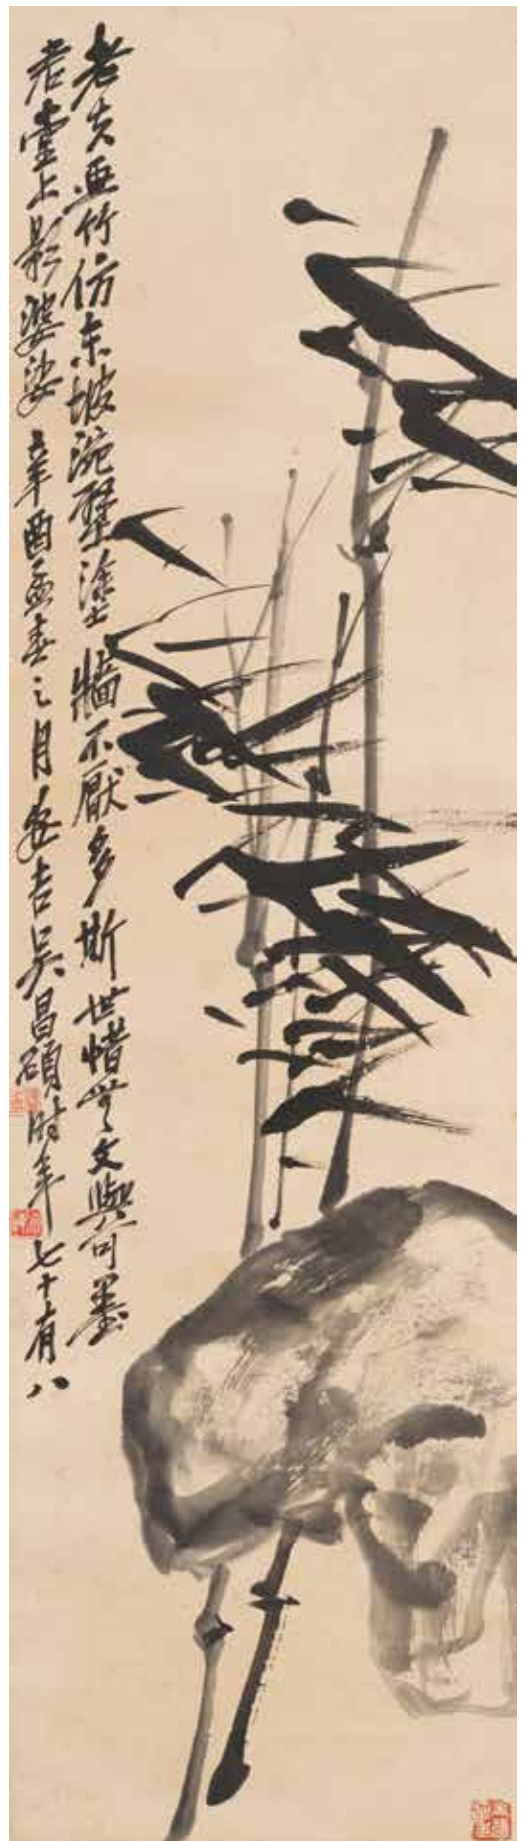 老夫畫竹仿東坡涴壁塗牆不厭多斯世惜無文與可墨
君堂上影婆娑 辛酉孟春之月安吉吳昌碩時年七十有八